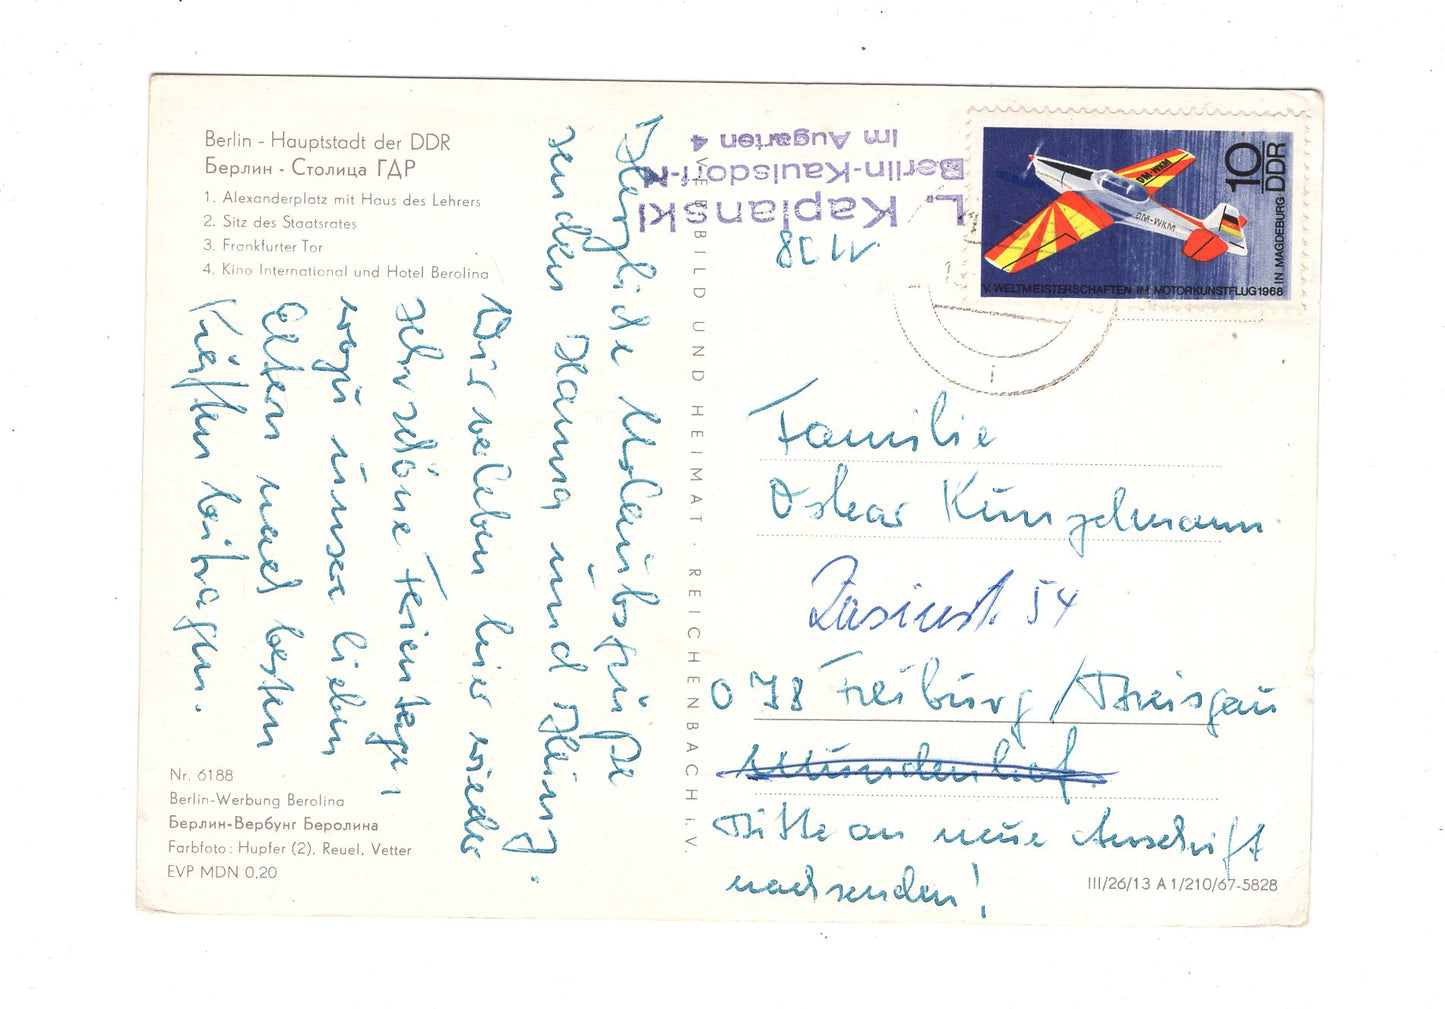 Berlin - Hauptstadt der DDR
Берлин - Столица ГДР
1. Alexanderplatz mit Haus des Lehrers
2. Sitz des Staatsrates
3. Frankfurter Tor
4. Kino International und Hotel Berolina
Herzliche Urlaubsgrüße
senden Hanna und Heinz.
Wir erleben hier wieder
sehr schöne Ferientage,
wozu unsere lieben
Alten nach besten
Kräften beitragen.
Nr. 6188
Berlin-Werbung Berolina
Берлин-Вербунг Беролина
Farbfoto: Hupfer (2), Reuel, Vetter
EVP MDN 0,20
VEB BILD UND HEIMAT · REICHENBACH i. V.
L. Kaplanski
Berlin-Kaulsdorf-N
Im Augarten 4
1138
10
DDR
DM-WKM
DM-WKM
V. WELTMEISTERSCHAFTEN IM MOTORKUNSTFLUG 1968
IN MAGDEBURG
Familie
Oskar Künzelmann
Zasiusst. 54
078 Freiburg/Breisgau
Mundenhof
Bitte an neue Anschrift
nachsenden!
III/26/13 A 1/210/67-5828